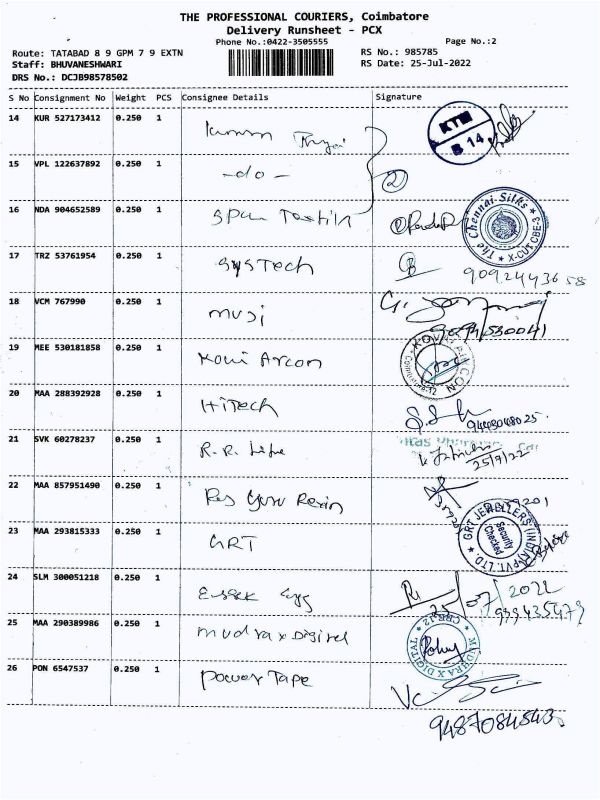 THE PROFESSIONAL COURIERS, Coimbatore
Delivery Runsheet - PCX
Phone No.:0422-3505555
Page No.:2
Route: TATABAD 8 9 GPM 7 9 EXTN
RS No.: 985785
Staff: BHUVANESHWARI
RS Date: 25-Jul-2022
DRS No.: DCJB98578502
S No Consignment No Weight PCS Consignee Details Signature
14 KUR 527173412 0.250 1
KTM
B 14
15 VPL 122637892 0.250 1 -do-
16 NDA 904652589 0.250 1 Span Textile
The Chennai Silks
X-CUT CBE-3
17 TRZ 53761954 0.250 1 Systech
9092443658
18 VCM 767990 0.250 1 musi
19 MEE 530181858 0.250 1 Kovi Arcon
Coimbatore-12
20 MAA 288392928 0.250 1 HiTech
21 SVK 60278237 0.250 1 R.R. Life
25/9/22
22 MAA 857951490 0.250 1
23 MAA 293815333 0.250 1 GRT
GRT JEWELLERS (INDIA) PVT. LTD.
Security Checked
24 SLM 300051218 0.250 1
2022
25 MAA 290389986 0.250 1 mudrax Digital
MUDHRAX DIGITAL
CBE-12
26 PON 6547537 0.250 1 power Tape
9487084543